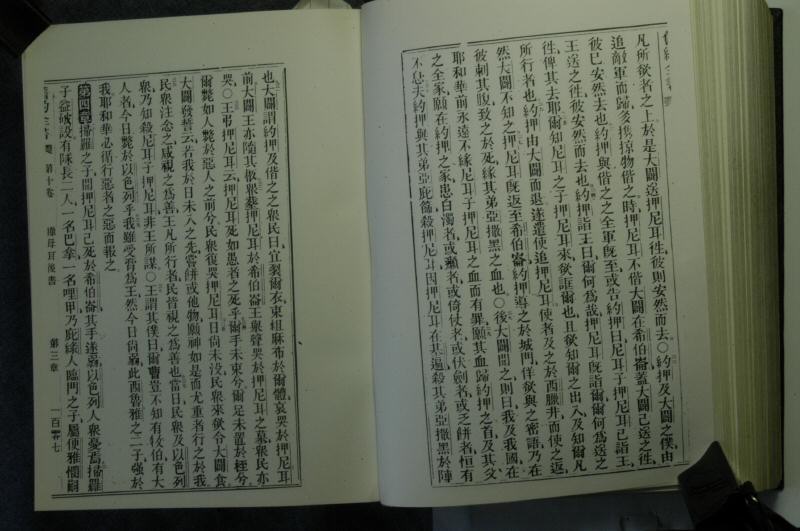 凡所欲者之上於是大闢送押尼耳徃彼則安然而去○約押及大闢之僕由
追敵軍而歸多攜掠物偕之時押尼耳不偕大闢在希伯崙蓋大闢已送之徃
彼已安然去也約押與偕之之全軍旣至或告約押曰尼耳子押尼耳已詣王
王送之徃彼安然而去也約押詣王曰爾何爲哉押尼耳旣詣爾爾何爲送之
徃俾其去耶爾知尼耳之子押尼耳來欲誆爾也且欲知爾之出入及知爾凡
所行者也約押由大闢而退遂遣使追押尼耳使者及之於西臘井而使之返
然大闢不知之押尼耳旣返至希伯崙約押導之於城門佯欲與之密語乃在
彼刺其腹致之於死緣其弟亞撒黑之血也○後大闢聞之則曰我及我國在
耶和華前永遠不緣尼耳子押尼耳之血而有罪願其血歸約押之首及其父
之全家願在約押之家患白濁者或癩者或倚仗者或伏劍者或乏餅者恒有
不息夫約押與其弟亞庇篩殺押尼耳因押尼耳在基遍殺其弟亞撒黑於陣
也大闢謂約押及偕之之衆民曰宜裂爾衣束組麻布於爾體哀哭於押尼耳
前大闢王亦隨其柩衆葬押尼耳於希伯崙王舉聲哭於押尼耳之墓衆民亦
哭○王弔押尼耳云押尼耳死如愚者之死乎爾手未束兮爾足未置於桎兮
爾斃如人斃於惡人之前兮民衆復哭押尼耳日尚未沒民衆來欲令大闢食
大闢發誓云若我於日未入之先嘗餅或他物願神如是而尤重者行之於我
民衆注念之咸視之爲善王凡所行者民皆視之爲善也當日民衆及以色列
衆乃知殺尼耳子押尼耳非王所謀○王謂其僕曰爾豈不知有牧伯有大
人者今日斃於以色列乎我雖受膏爲王然今日尚弱此西魯雅之二子強於
我耶和華必循行惡者之惡而報之
第四章掃羅之子聞押尼耳已死於希伯崙其手遂弱以色列人衆憂焉掃羅
子益坡設有隊長二人一名巴拿一名哩甲乃庇綠人臨門之子屬便雅憫嗣
第十卷 撒母耳後書 第三章 一百零七